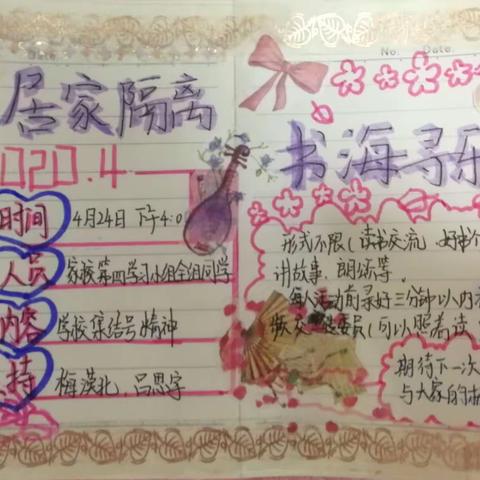 Date:
No. Date.
居家隔离
书海寻乐
2020.4
时间 4月24日 下午4:0
人员 家校第四学习小组全组同学
内容 学校集结号精神
持 梅漠北、吕思宇
形式不限(读书交流 好书
讲故事、朗诵等
每人活动前录好三分钟以内
委员(可以照着读
期待下一次
与大家的